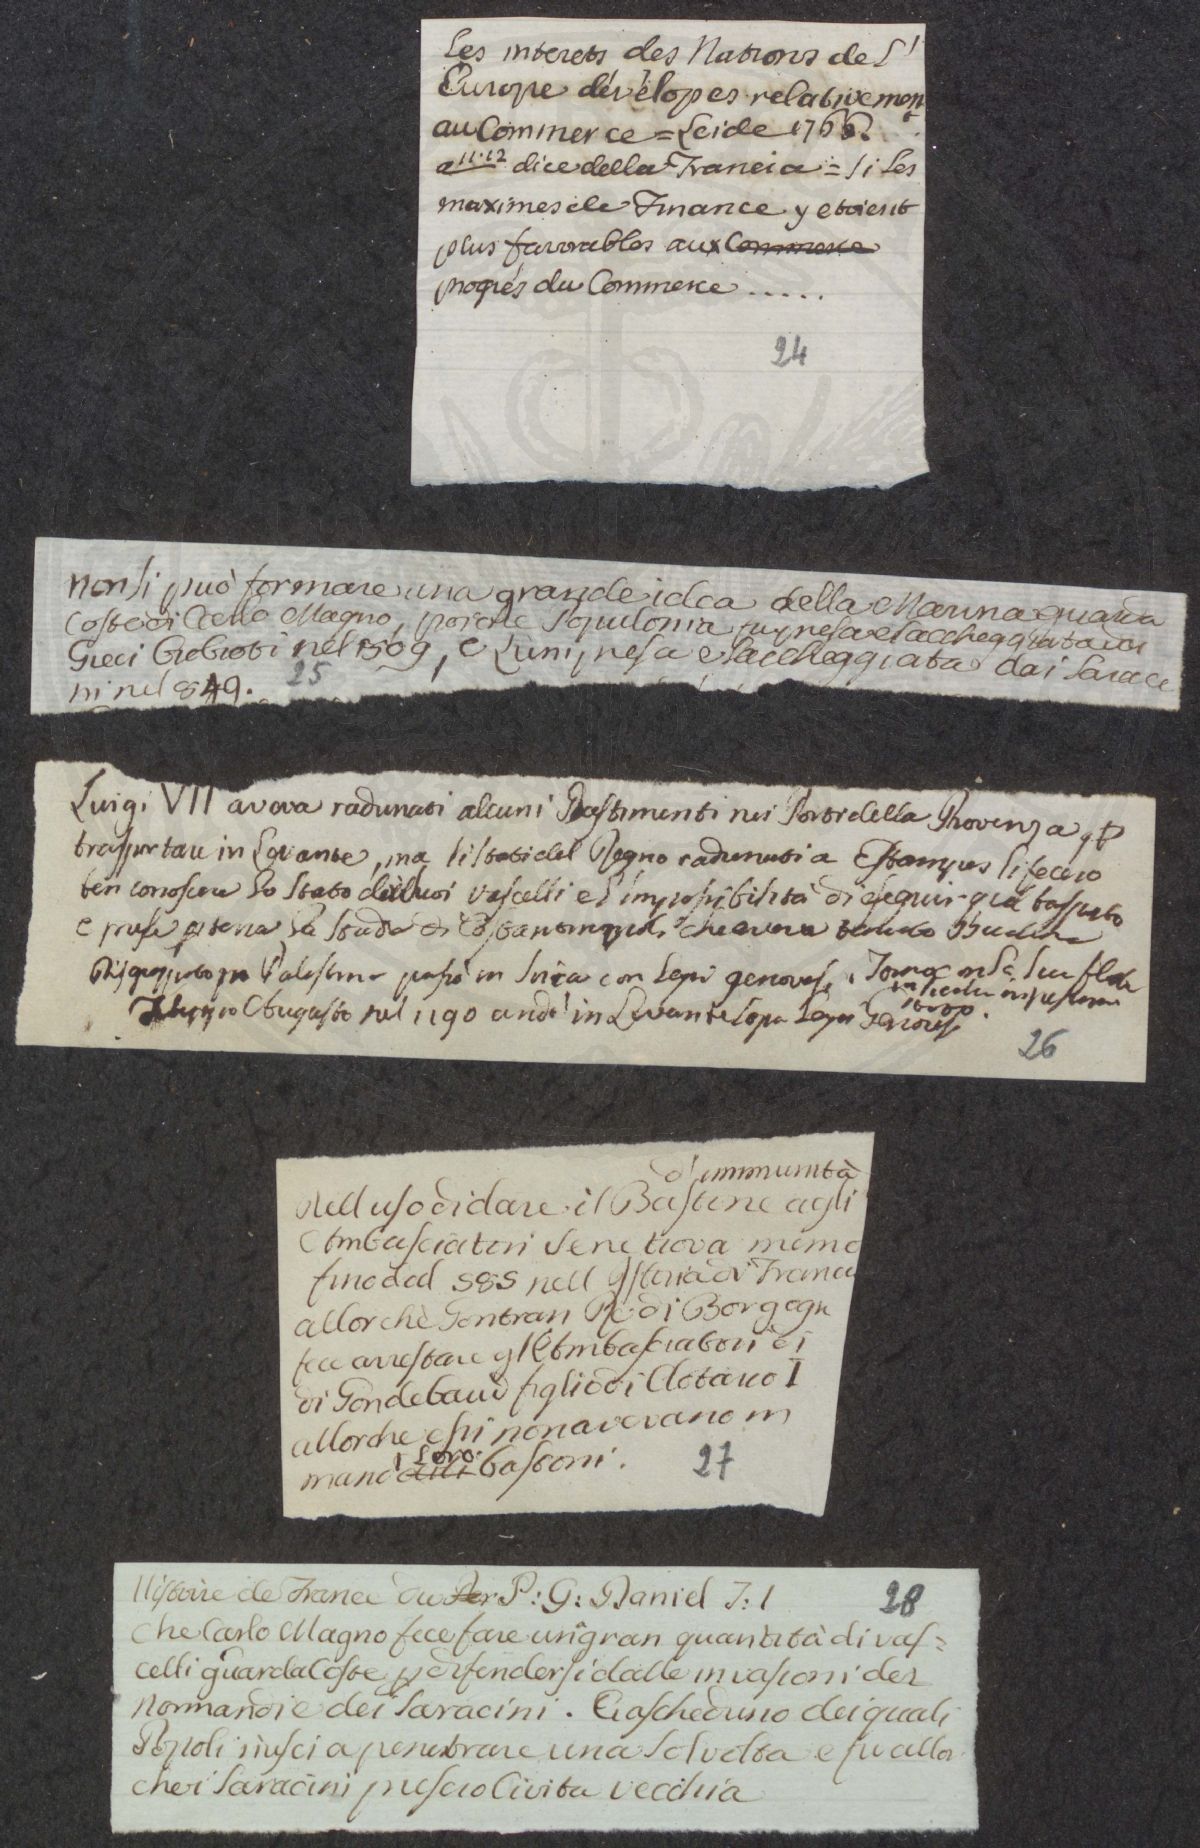 Les interets des Nations de L'
Europe dévélopes relativement
au Commerce = Leide 1766.
a 11.12 dice della Francia = si les
maximes de Finance y etoient
plus favorables aux Commerce
progrés du Commerce .....
24
non si può formare una grande idea della Marina guarda
coste di Carlo Magno, poiche fu presa e saccheggiata dai
Greci nel 809, e Luni presa e saccheggiata dai Sarace
ni nel 849.
25
Luigi VII aveva radunati alcuni Bastimenti nei Porti della Provenza p
trasportare in Levante, ma li stati del Regno radunati a Estampes li fecero
ben conoscere lo stato dei suoi vascelli e l'impossibilità di eseguir quel
e prese p terra la strada di Costantinopoli che aveva tenuto
Palestina passò in con Legni genovesi
Filippo Augusto nel 1190 andò in Levante sopra Legni Genovesi
26
d'immunità
Nell uso di dare il Bastone agli
Ambasciatori se ne trova memo
fino dal 585 nell Istoria di Francia
allorchè Gontran Re di Borgogn
fece arrestare gl'Ambasciatori di
di Gondebaud figlio di Clotario I
allorche essi non avevano in
mano i Loro bastoni.
27
Histoire de France du Per P: G: Daniel T: I
28
che Carlo Magno fece fare una gran quantità di vas=
celli guarda Coste p difendersi dalle invasioni dei
Normandi e dei Saracini. Ciascheduno dei quali
Popoli riuscì a penetrare una sol volta e fu allor
che i Saracini presero Civita vecchia